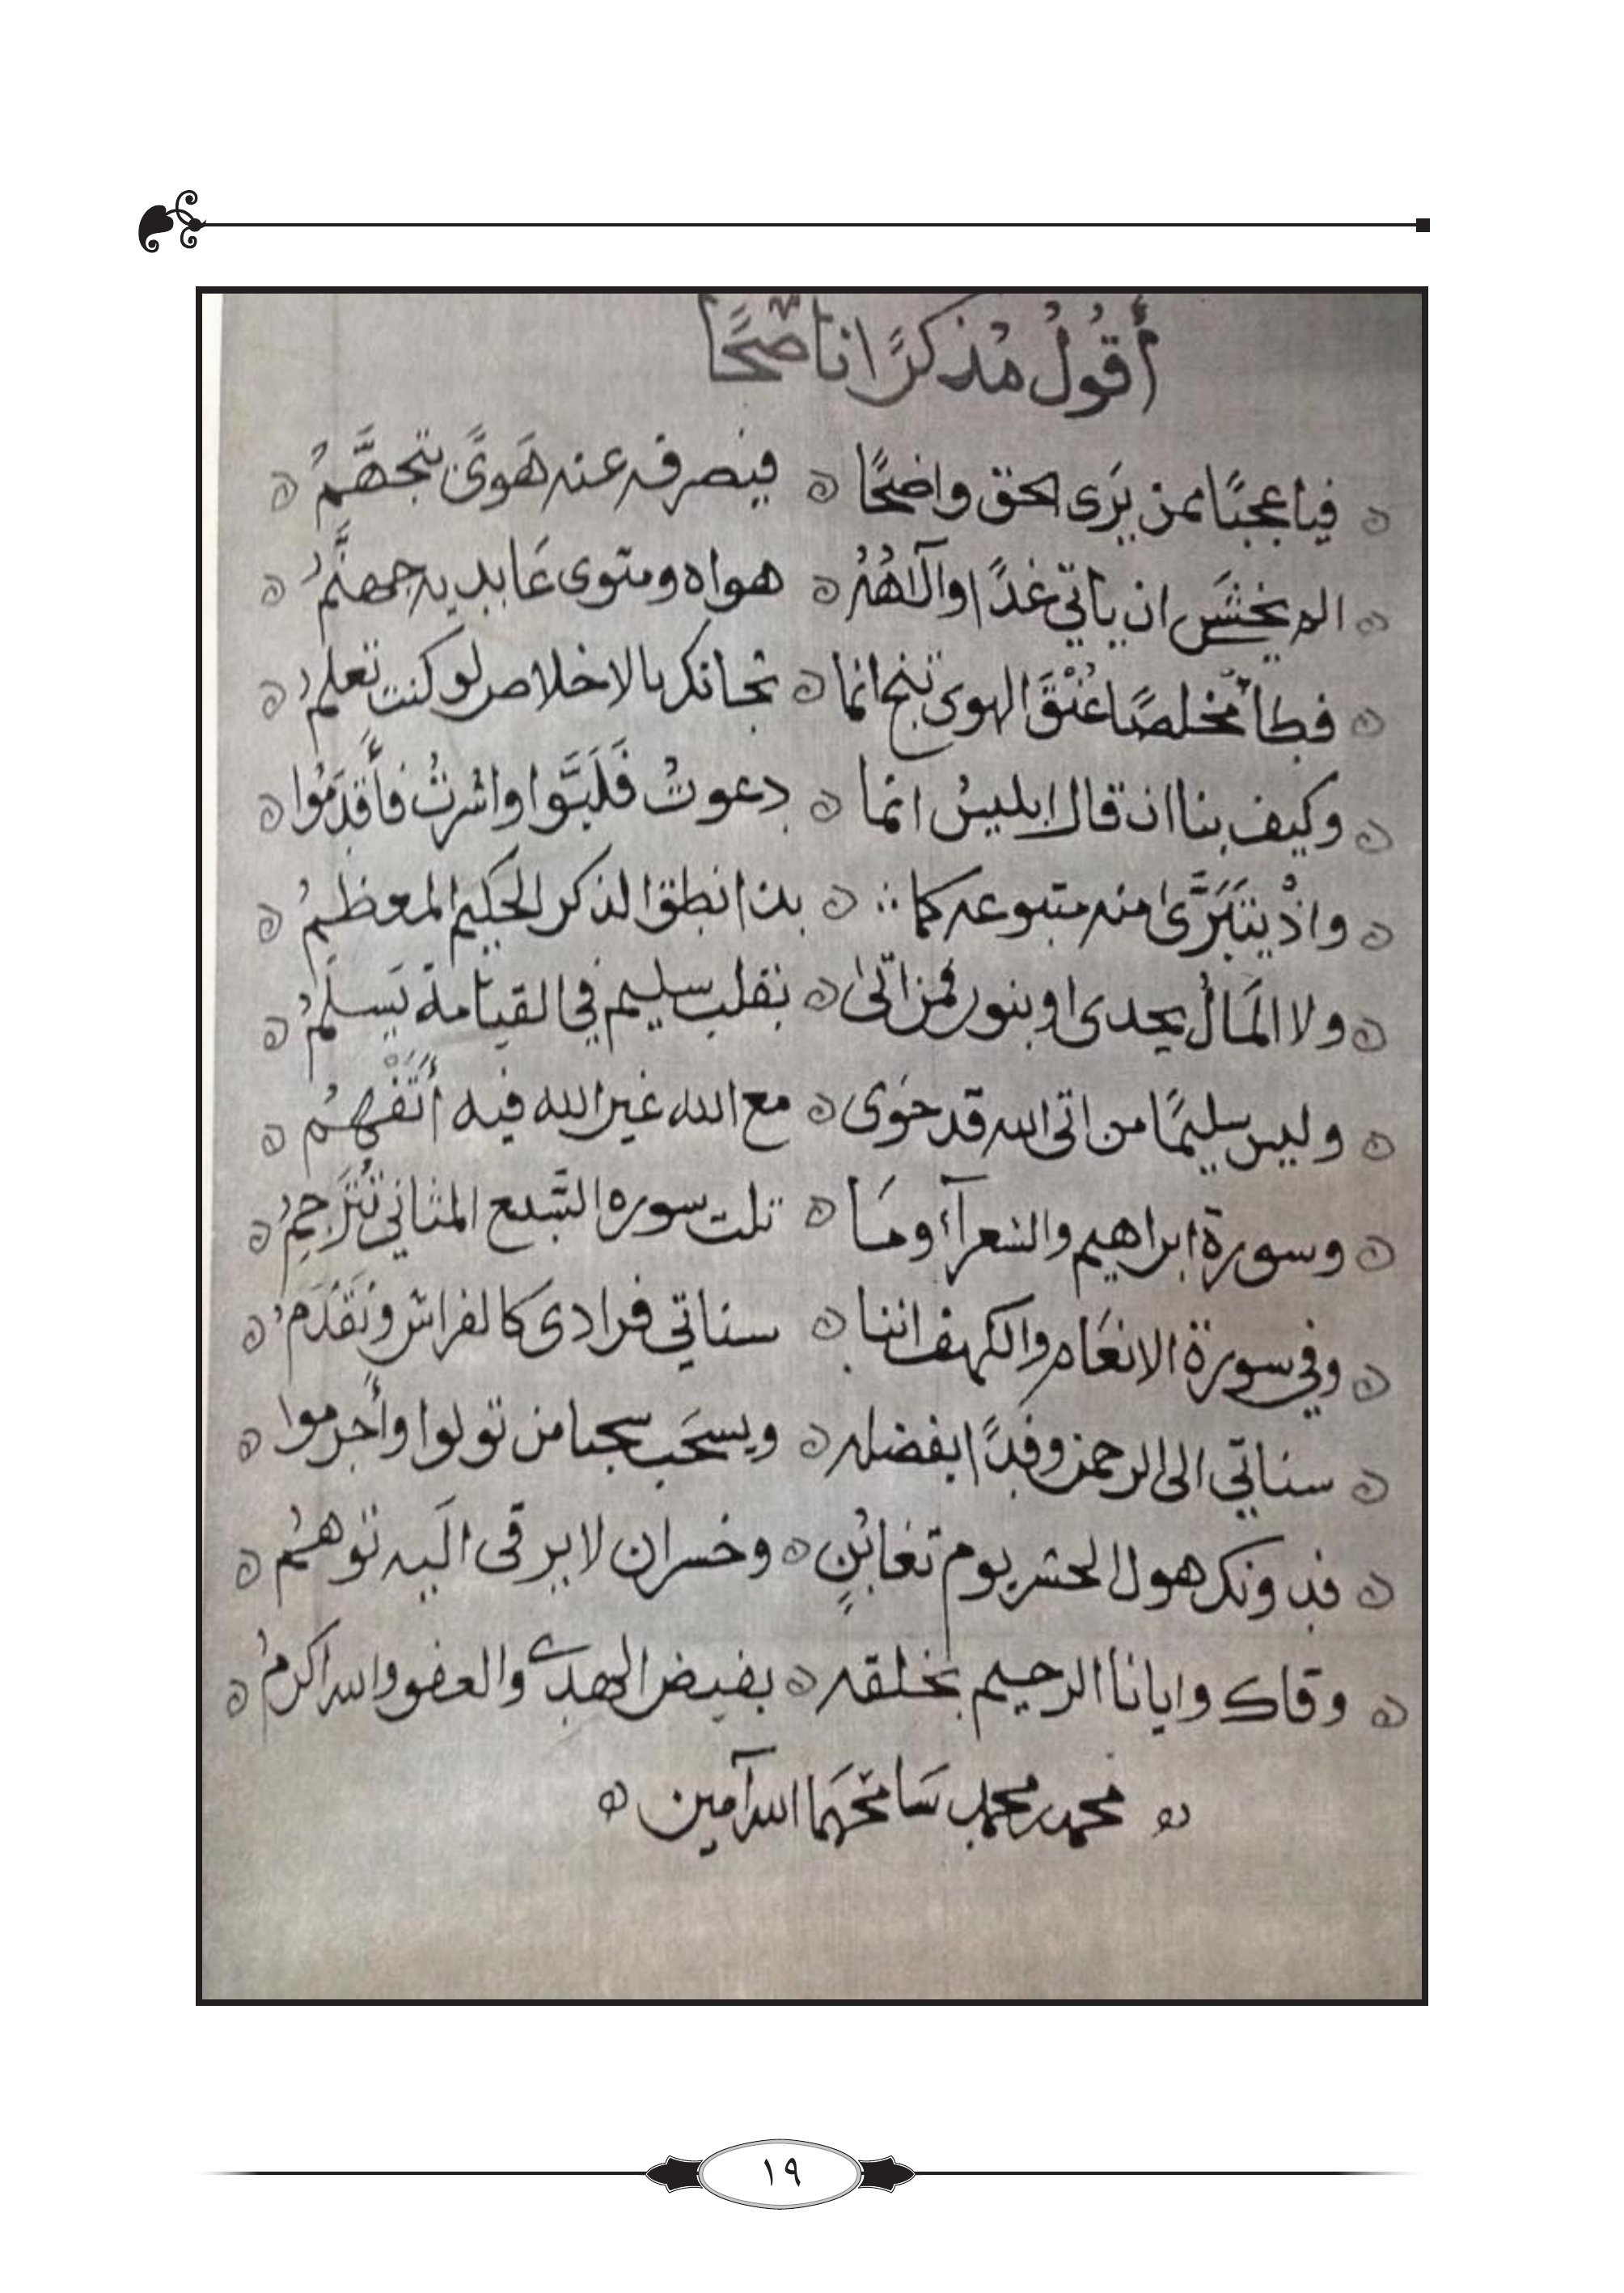 أَقُولُ مُذكرًا ناصحًا
فيا عجبًا ممن يَرَى الحق واضحًا ه فيصرفه عنه هَوىً يتجهَّمُ
الم يخشَ ان ياتي غدًا والٓاهُهُ ه هواه ومثوى عَابديه جهنَّمُ
فطأ مخلصًا عُنْقَ الهوى تنج انما ه نجاتك بالاخلاص لو كنت تعلمُ
وكيف بنا ان قال ابليسُ انما ه دعوتُ فَلَبَّوا واشرتُ فأَقدَمُوا
واذْ يتَبَرَّى منه متبوعه كما ه بذا نطق الذكر الحكيم المعظمُ
ولا المَالُ يجدى او بنور فمن اتى ه بقلب سليم في القيامة يَسلمُ
وليس سليمًا من اتى الله قد حَوى ه مع الله غير الله فيه أَتَفْهمُ
وسورة ابراهيم والشعرآء وما ه تلت سوره السَّبع المثاني تُتَرجِمُ
وفي سورة الانعَام والكهف اننا ه سناتي فرادى كالفراش ونَقدَمُ
سناتي الى الرحمن وفدًا بفضله ه ويسحَب سحبا من تولوا وأجرموا
فدونك هول الحشر يوم تغابُنٍ ه وخسران لا يرقى اليه توهمُ
وقاك وايانا الرحيم بخلقه ه بفيض الهدى والعفو والله اكرمُ
محمد محمد سَامحَهما الله آمين
١٩